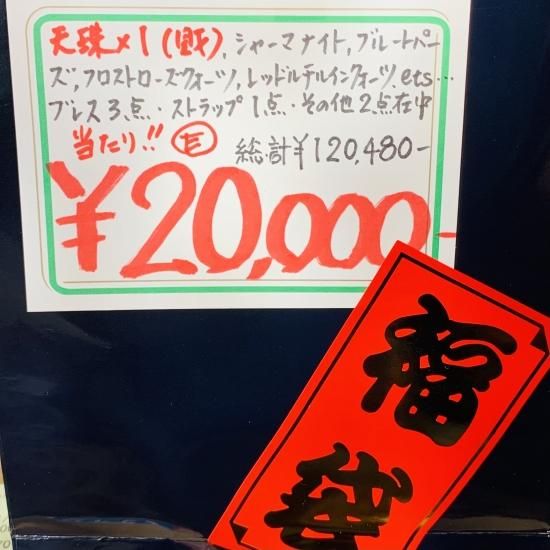 天珠×1(別),シャーマナイト,ブルートパー
ズ,フロストローズクォーツ,レッドルチルインクォーツets…
ブレス3点・ストラップ1点・その他2点在中
当たり!! E 総計¥120,480-
¥20,000-
福袋